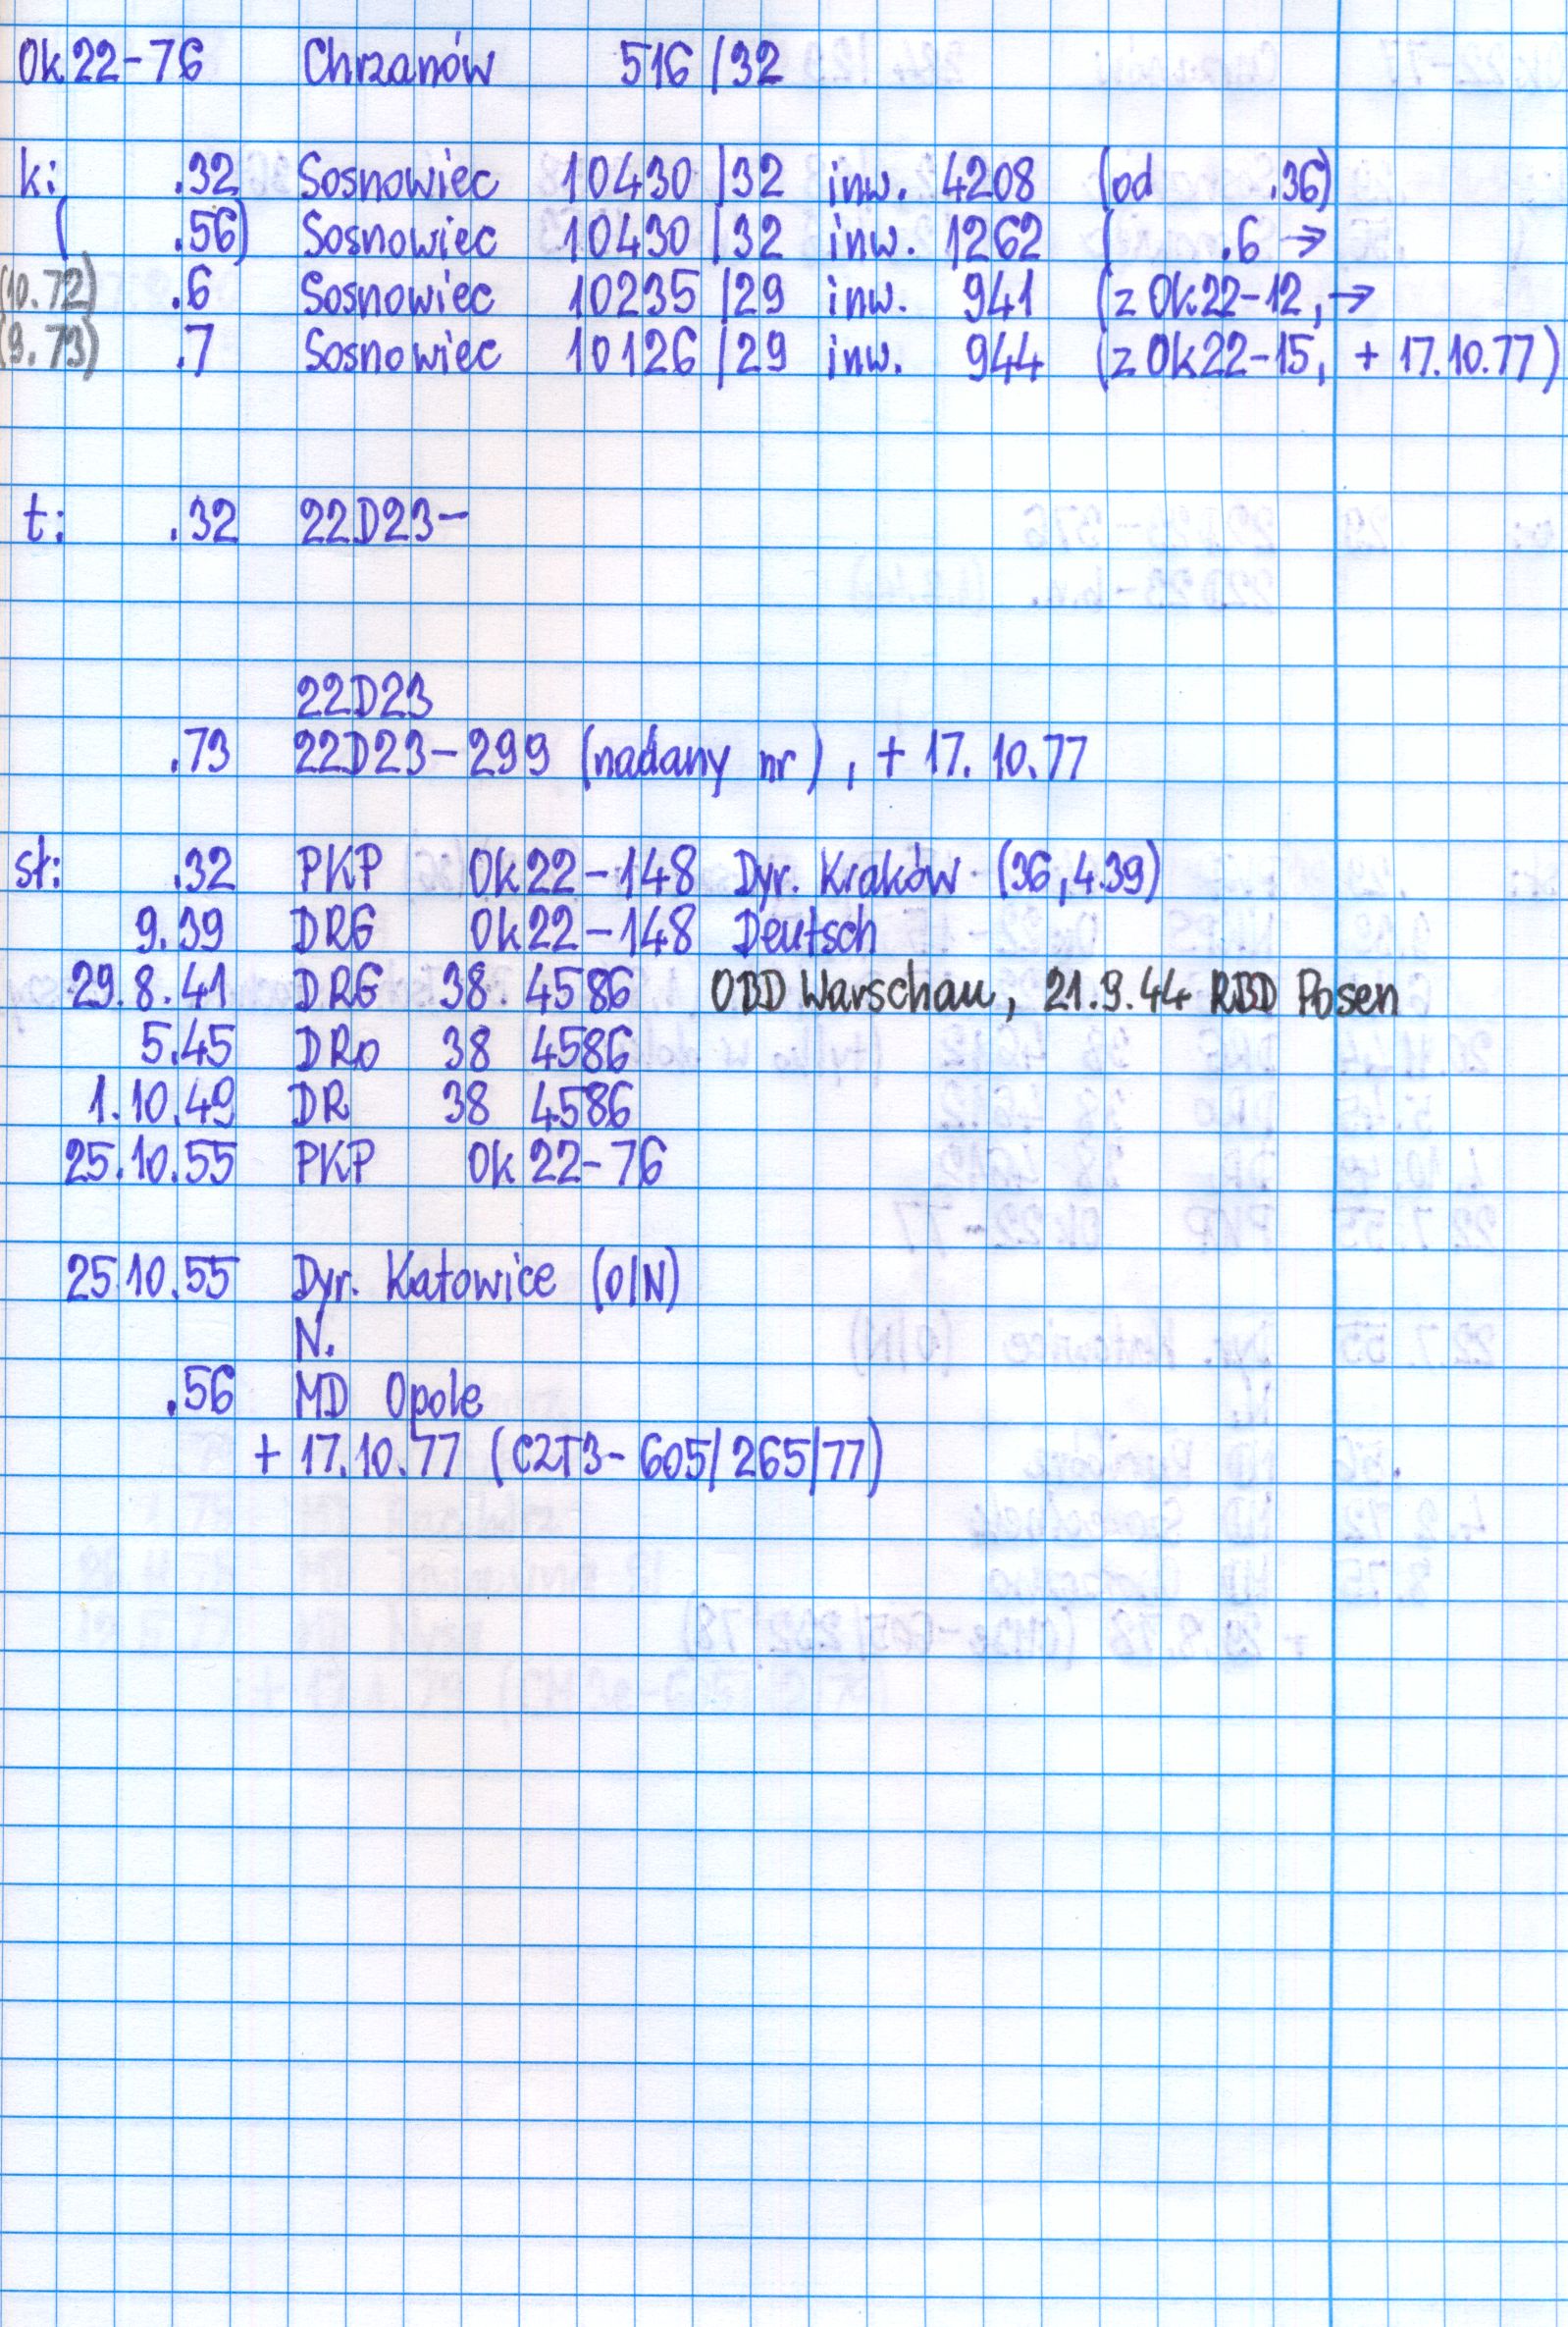 Ok22-76 Chrzanów 516/32
k: .32 Sosnowiec 10430/32 inw. 4208 (od .36)
( .56) Sosnowiec 10430/32 inw. 1262 ( .6 →
(10.72) .6 Sosnowiec 10235/29 inw. 941 (z Ok22-12, →
(9.73) .7 Sosnowiec 10126/29 inw. 944 (z Ok22-15, + 17.10.77)
t: .32 22D23-
22D23
.73 22D23-299 (nadany nr), + 17.10.77
sł: .32 PKP Ok22-148 Dyr. Kraków (36,4.39)
9.39 DRG Ok22-148 Deutsch
29.8.41 DRG 38.4586 OBD Warschau, 21.9.44 RBD Posen
5.45 DRo 38 4586
1.10.49 DR 38 4586
25.10.55 PKP Ok22-76
25.10.55 Dyr. Katowice (o/N)
N.
.56 MD Opole
+ 17.10.77 (CZT3-605/265/77)